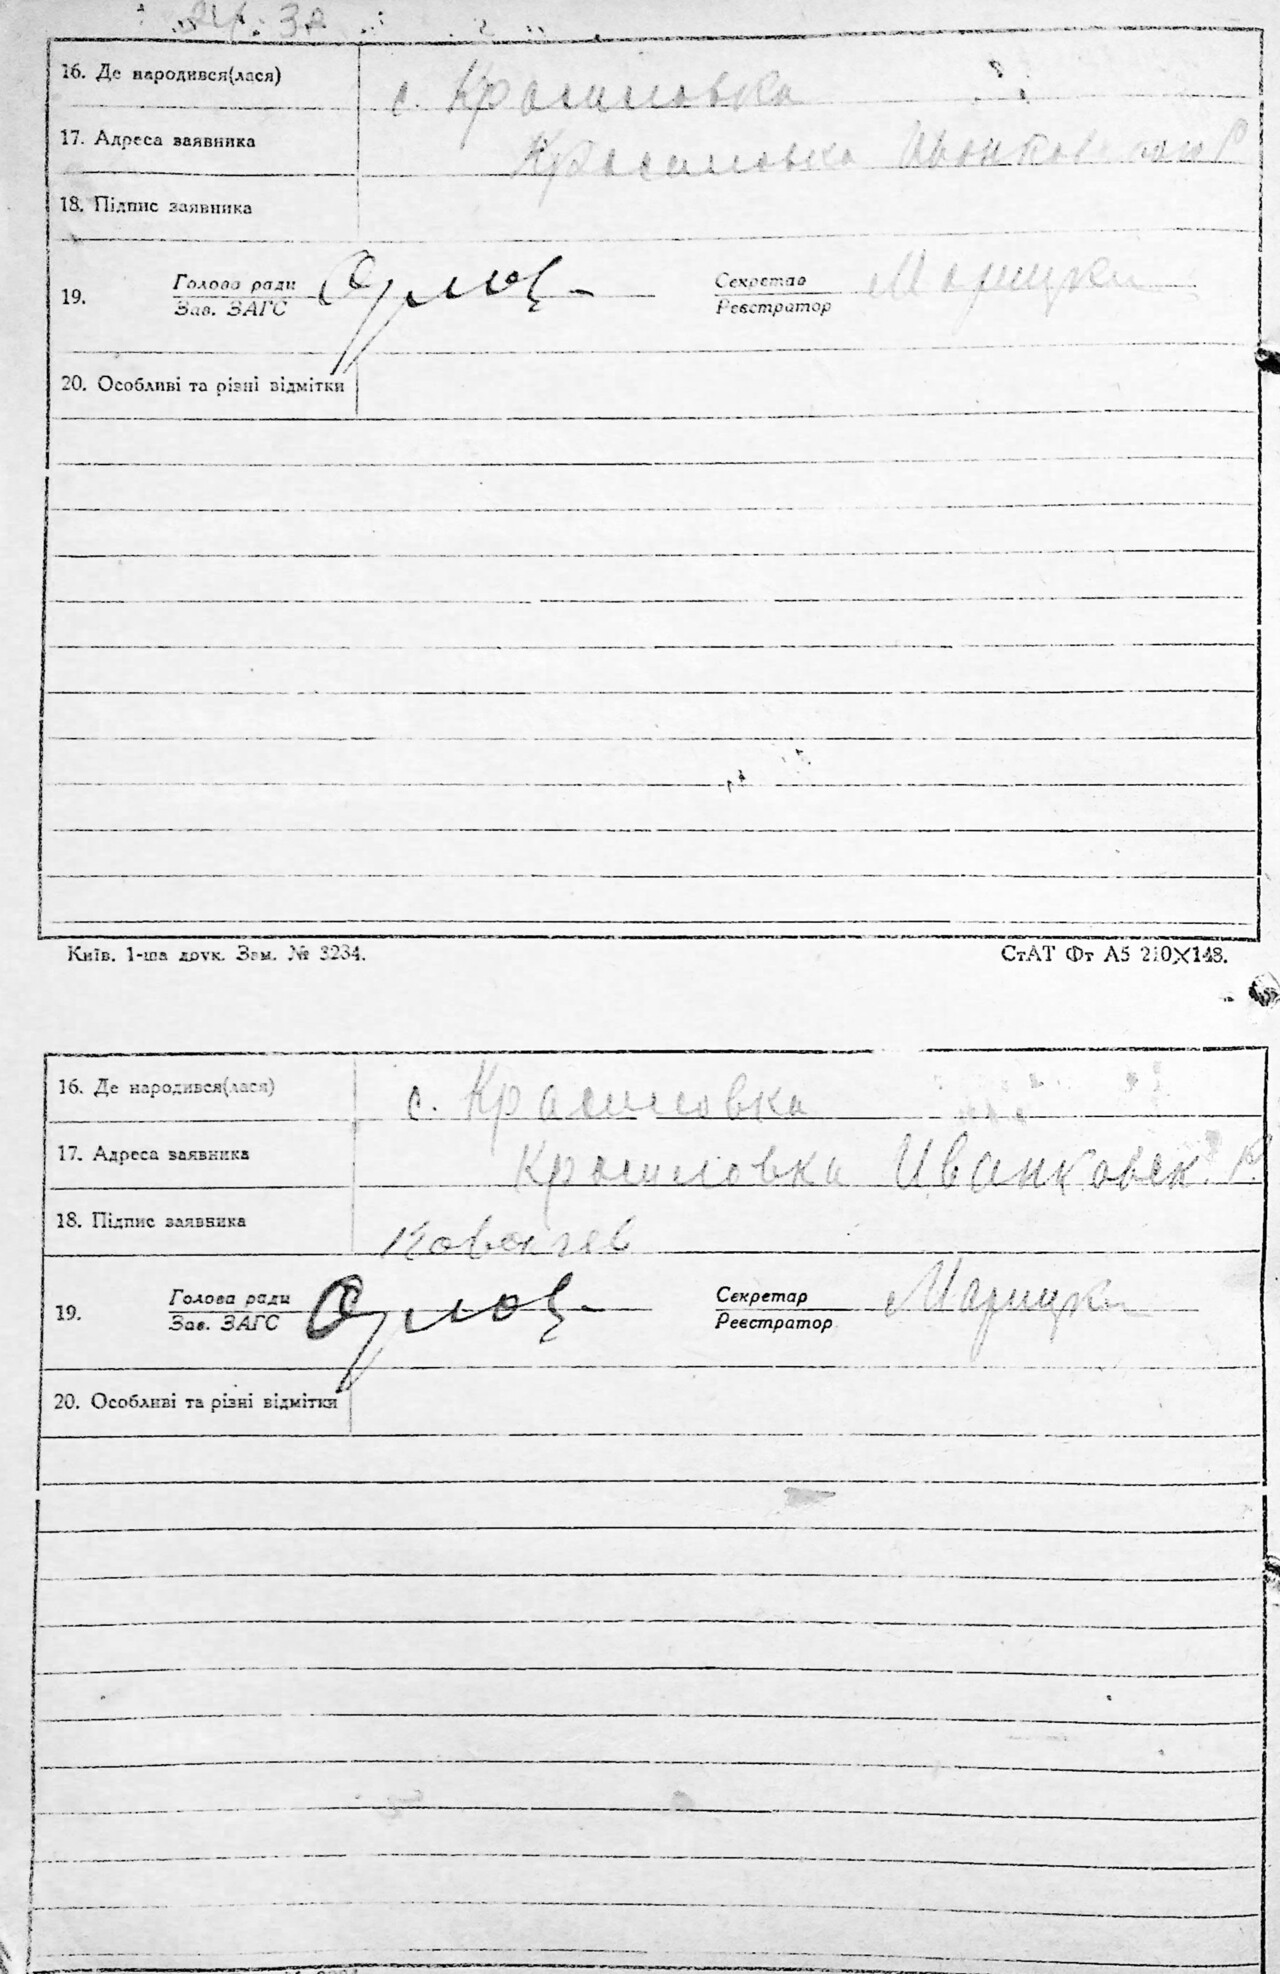 16. Де народився(лася) с. Красиловка
17. Адреса заявника Красиловка
18. Підпис заявника
19. Голова ради Секретар
Зав. ЗАГС Реєстратор
20. Особливі та різні відмітки
Київ. 1-ша друк. Зам. № 3234. СтАТ Фт А5 210×148.
16. Де народився(лася) с. Красиловка
17. Адреса заявника Красиловка Иванковск. Р.
18. Підпис заявника
19. Голова ради Секретар
Зав. ЗАГС Реєстратор
20. Особливі та різні відмітки